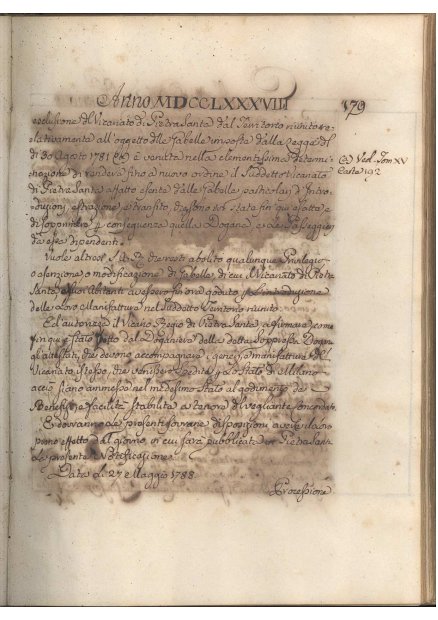 Anno MDCCLXXXVIII 179
esclusione del Vicariato di Pietra Santa dal Territorio riunito re-
lativamente all'oggetto delle Gabelle imposte dalla Legge del
dì 30 Agosto 1781 è venuta nella clementissima determi-
nazione di rendere fino a nuovo ordine il suddetto Vicariato
di Pietra Santa affatto esente dalle Gabelle particolari d'Intro-
duzioni, estrazione, e transito, che sono ivi state fin qui esatte, e
di sopprimere conseguenza quella Dogana, e i Passeggieri
da essa dipendenti.
(a) Ved. Tom XV
Carte 192
Vuole altresì S.A.R. che resti abolito qualunque Privilegio,
o esenzione, o modificazione di Gabelle, di cui il Vicariato di Pietra
Santa, e suoi Abitanti avessero finora goduto l'introduzione
delle Loro Manifatture nel suddetto Territorio riunito.
Ed autorizza il Vicario Regio di Pietra Santa a firmare come
fin qui è stato fatto dal Doganiere della detta soppressa Dogana
gl'attestati, che devono accompagnare i generi, e manifatture del
Vicariato istesso, che venissero spedite lo Stato di Milano
acciò siano ammesse nel medesimo Stato al godimento de
Benefizi, e facilità stabilite a tenore del vegliante concordato.
E dovranno le presenti sovrane disposizioni avere il loro
pieno effetto dal giorno, in cui sarà pubblicata in Pietra Santa
la presente Notificazione.
Data li 27 Maggio 1788
Processione